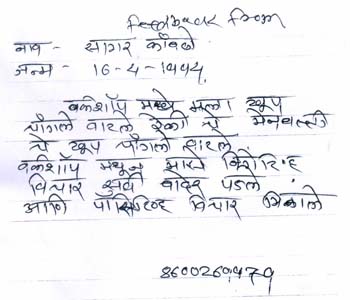 Feedback From
नाव - सागर कांबळे
जन्म - 16-4-1994.
वर्कशॉप मध्ये मला खूप
चांगले वाटले रेकी चे
चे खूप चांगले वाटले.
वर्कशॉप मधून सारे
विचार सर्व बाहेर पडले
आणि पॉझिटिव्ह विचार मिळाले